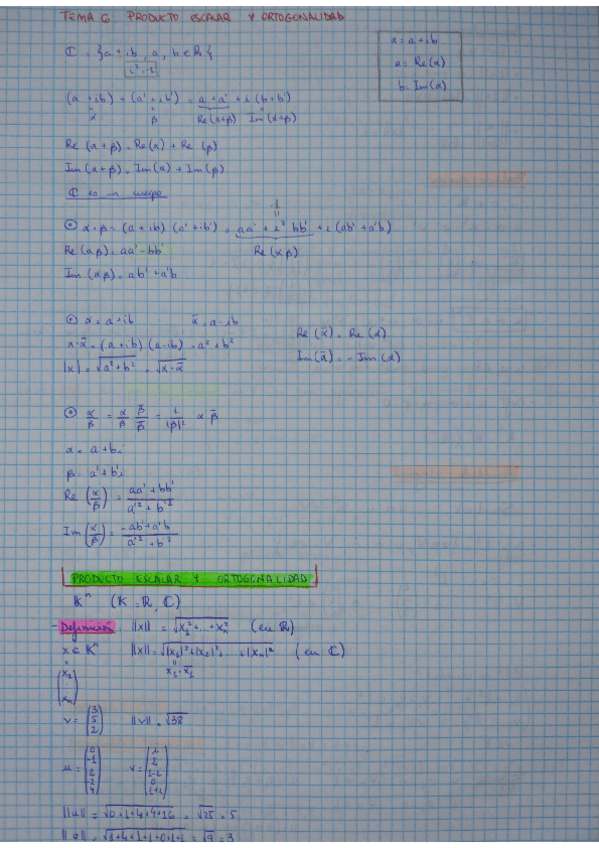 TEMA 6 PRODUCTO ESCALAR Y ORTOGONALIDAD
ℂ = {a + ib, a, b ∈ ℝ}
i² = -1
α = a + ib
a = Re(α)
b = Im(α)
(a + ib) + (a' + ib') = a + a' + i (b + b')
α β Re(α+β) Im(α+β)
Re (α + β) = Re(α) + Re (β)
Im (α + β) = Im(α) + Im (β)
ℂ es un cuerpo
-1
⊙ α · β = (a + ib) (a' + ib') = aa' + i² bb' + i (ab' + a'b)
Re (αβ) = aa' - bb' Re (αβ)
Im (αβ) = ab' + a'b
⊙ α = a + ib ᾱ = a - ib
α · ᾱ = (a + ib) (a - ib) = a² + b²
|α| = √(a² + b²) = √(α · ᾱ)
Re (ᾱ) = Re (α)
Im (ᾱ) = - Im (α)
⊙ α/β = α/β β̄/β̄ = 1/|β|² α β̄
α = a + bi
β = a' + b'i
Re (α/β) = (aa' + bb')/(a'² + b'²)
Im (α/β) = (-ab' + a'b)/(a'² + b'²)
PRODUCTO ESCALAR Y ORTOGONALIDAD
𝕂ⁿ (𝕂 = ℝ, ℂ)
- Definición: ||x|| = √(x₁² + ... + xₙ²) (en ℝ)
x ∈ 𝕂ⁿ ||x|| = √(|x₁|² + |x₂|² + ... + |xₙ|²) (en ℂ)
(x₁ ⋮ xₙ) x₁ · x̄₁
v = (3 5 2) ||v|| = √38
u = (0 -1 2 -2 4) v = (i 2 1-i 0 1+i)
||u|| = √(0+1+4+4+16) = √25 = 5